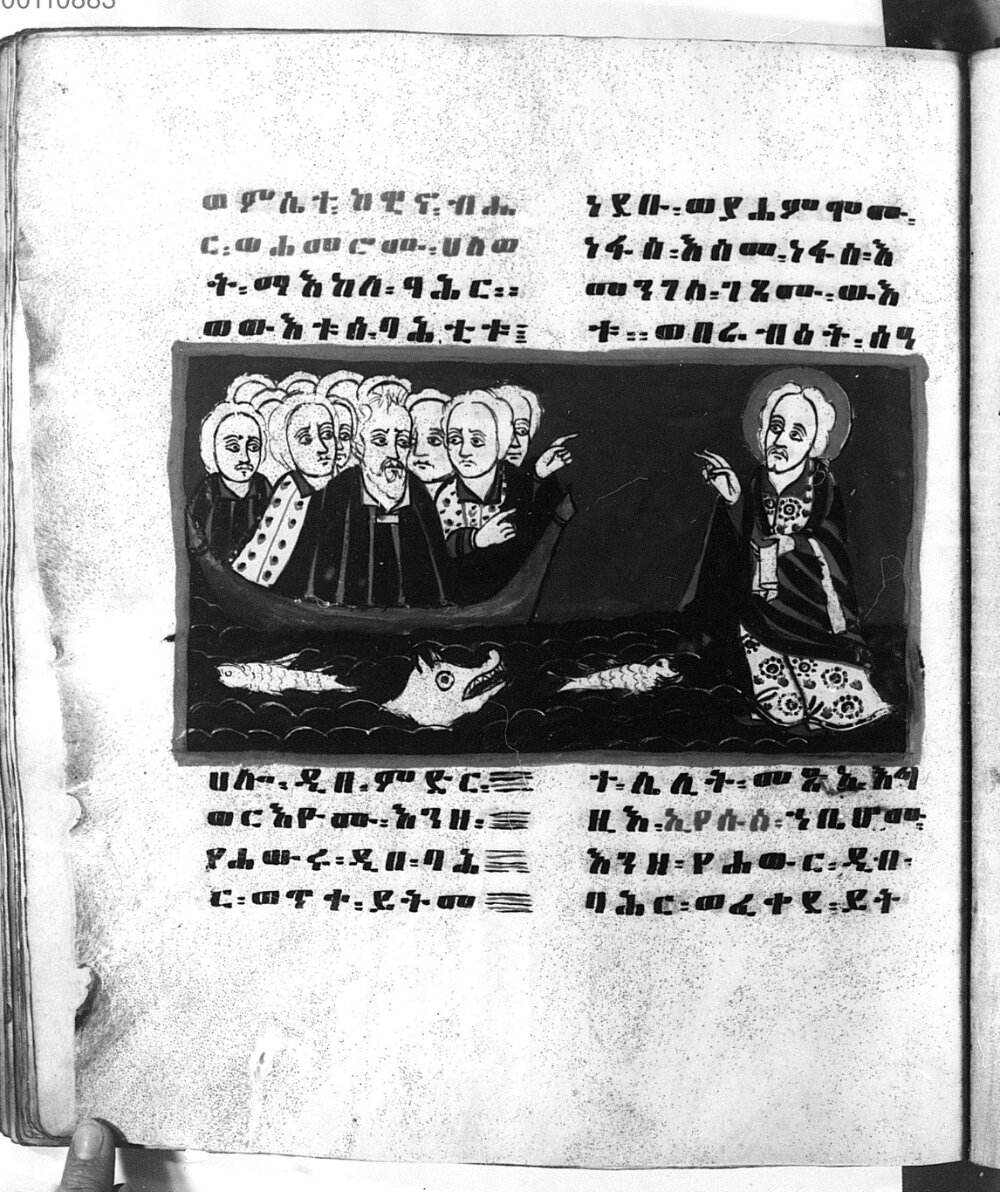 00110883
ወምሴተ፡ ከዊኖ፡ ብሔ
ር፡ ወሐመሮሙ፡ ሀለወ
ት፡ ማእከለ፡ ባሕር።
ወውእቱሰ፡ ባሕቲቱ፡
ሀሎ፡ ዲበ፡ ምድር፡
ወርእዮሙ፡ እንዘ፡
የሐውሩ፡ ዲበ፡ ባሕ
ር፡ ወጥቀ፡ ይትመ
ነደቡ፡ ወያሐምሞሙ፡
ነፋስ፡ እስመ፡ ነፋስ፡ እ
መንገለ፡ ገጾሙ፡ ውእ
ቱ። ወበራብዕት፡ ሰዓ
ተ፡ ሌሊት፡ መጽአ፡ እግ
ዚእ፡ ኢየሱስ፡ ኀቤሆሙ፡
እንዘ፡ የሐውር፡ ዲበ፡
ባሕር፡ ወፈቀደ፡ ይት